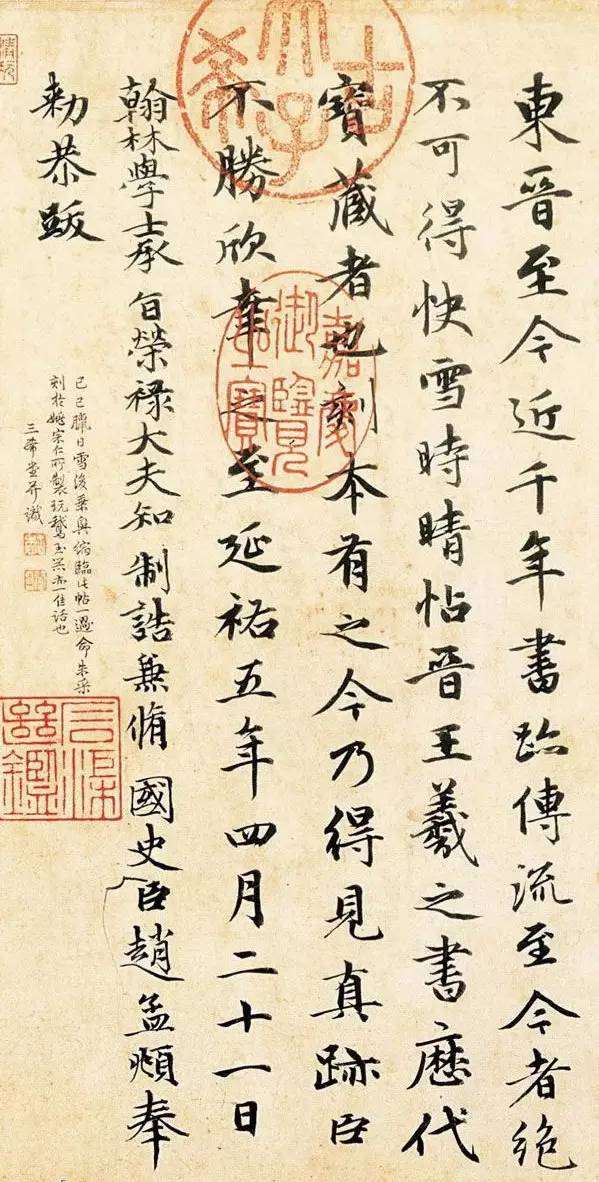 東晉至今近千年書跡傳流至今者絶
不可得快雪時晴帖晉王羲之書歷代
寶藏者也刻本有之今乃得見真跡臣
不勝欣幸之至延祐五年四月二十一日
翰林學士承旨榮祿大夫知制誥兼脩國史臣趙孟頫奉
勅恭跋
己巳臘日雪後乗興縮臨此帖一過命朱采
刻於姚宗仁所製玩鵝玉器亦一佳話也
三希堂并識
古稀天子
嘉慶御覽之寶